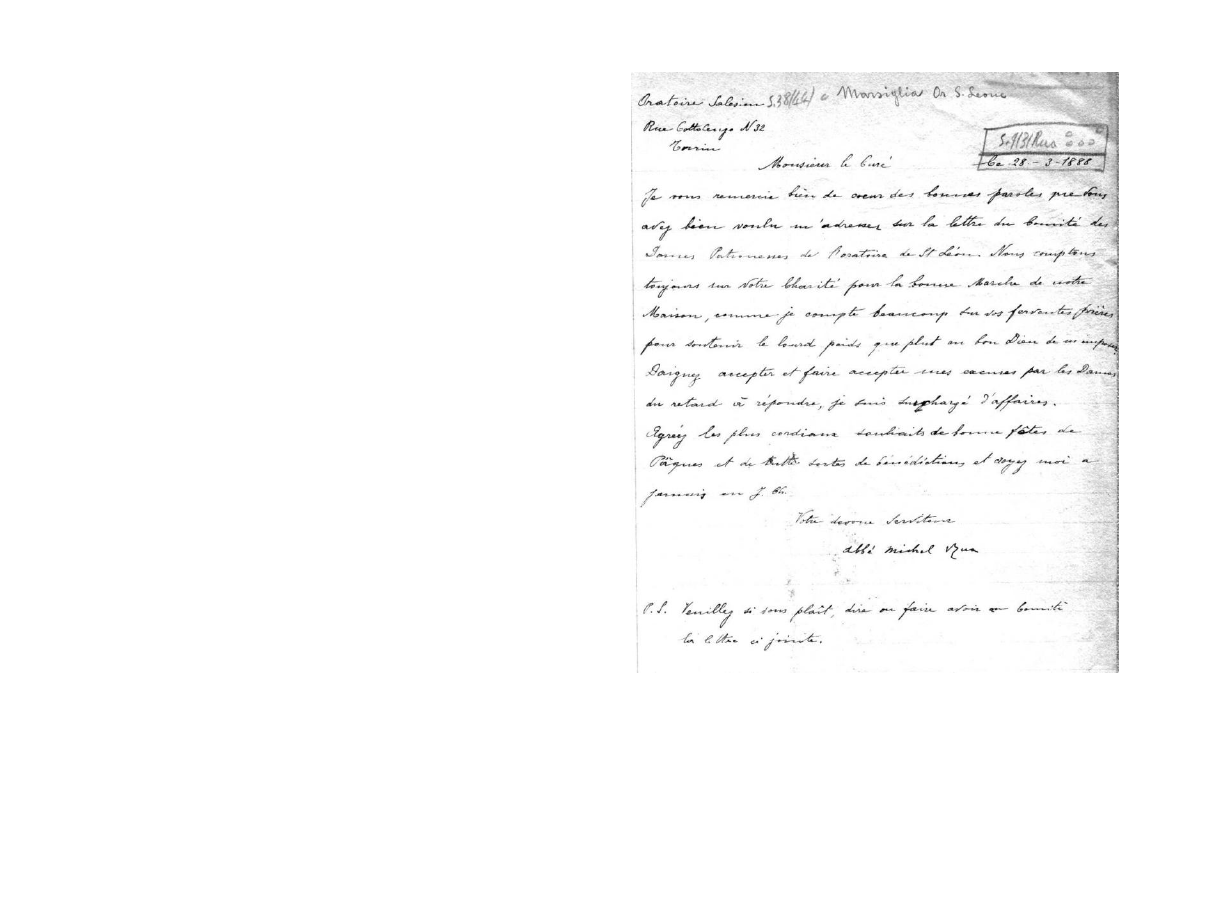 Oratoire Salesien S.38(44) a Marsiglia Or. S. Leone
Rue Cottolengo N 32
Turin
S.9131 Rua
Monsieur le Curé
Le 28 - 3 - 1888
Je vous remercie bien de cœur des bonnes paroles que vous
avez bien voulu m'adresser sur la lettre du Comité des
Dames Patronesses de l'oratoire de St Léon. Nous comptons
toujours sur votre Charité pour la bonne Marche de notre
Maison, comme je compte beaucoup sur vos ferventes prières
pour soutenir le lourd poids que plut au bon Dieu de m'imposer
Daignez accepter et faire accepter mes excuses par les Dames
du retard à répondre, je suis surchargé d'affaires.
Agréez les plus cordiaux souhaits de bonne fêtes de
Pâques et de sortes de bénédictions et croyez moi a
jamais en J. Ch.
Votre devoué Serviteur
abbé Michel Rua
P.S. Veuillez si vous plaît, dire ou faire avoir au Comité
la lettre ci jointe.